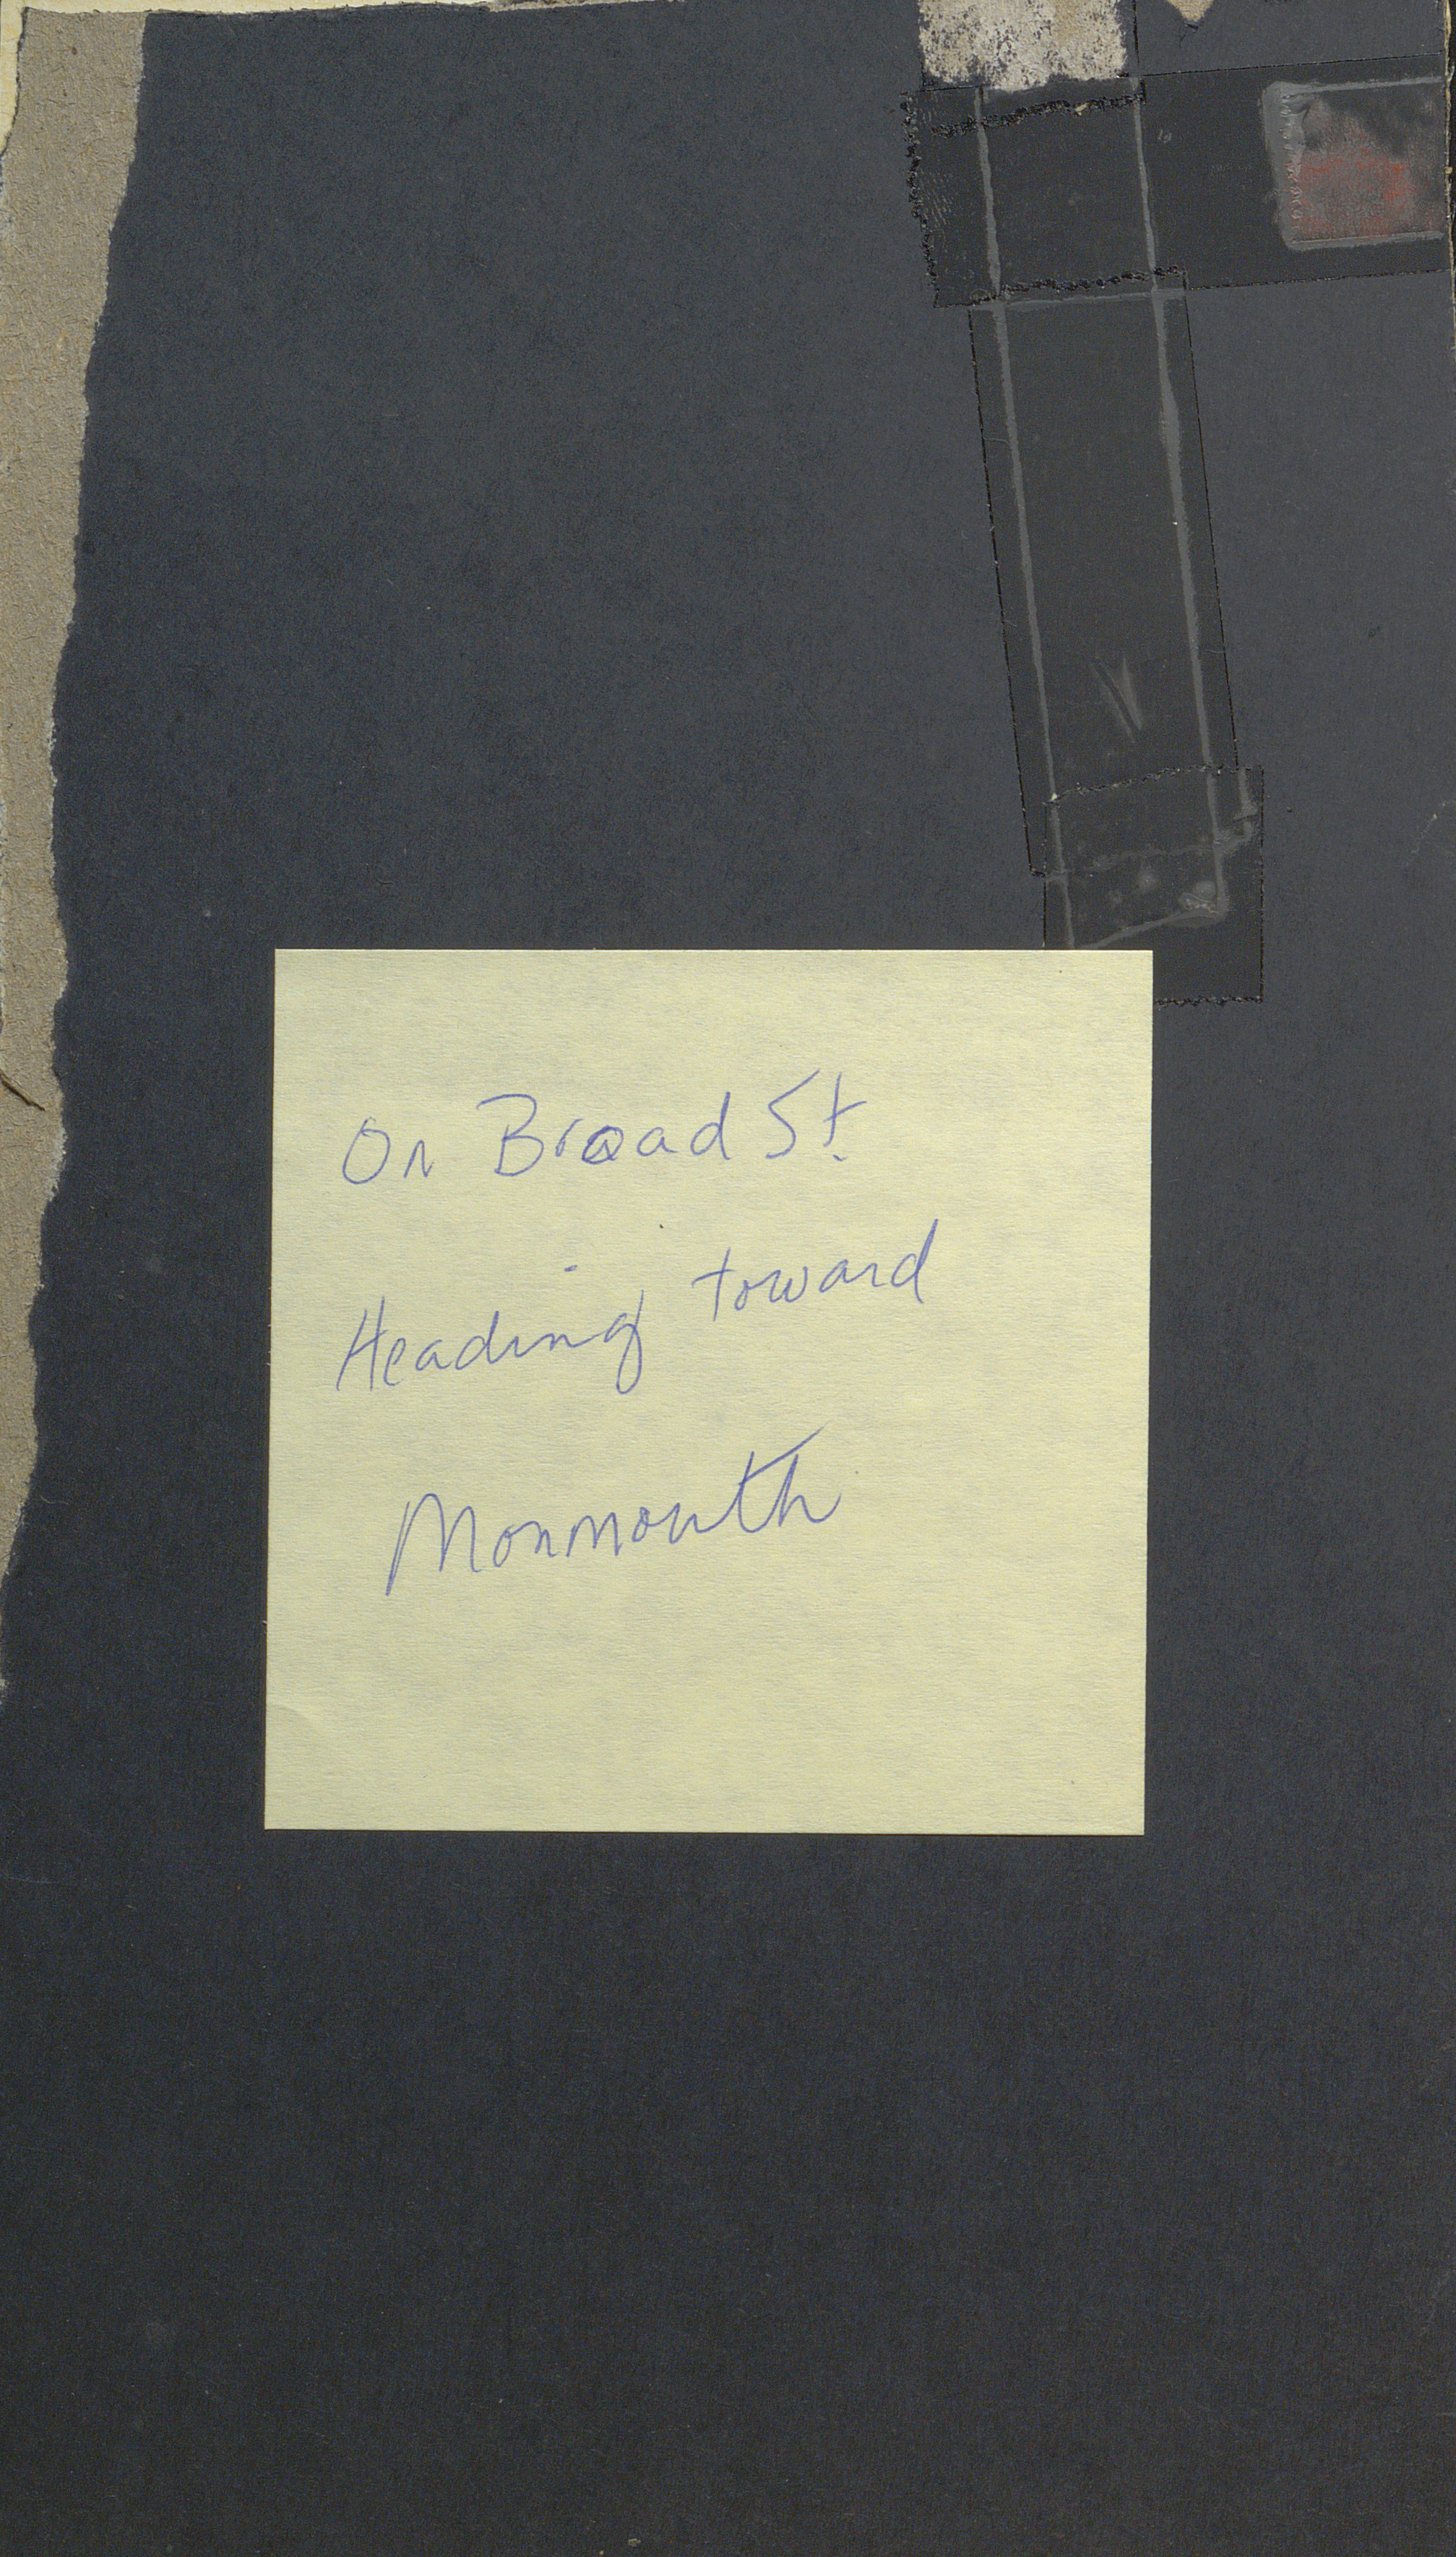 On Broad St.
Heading toward
Monmouth